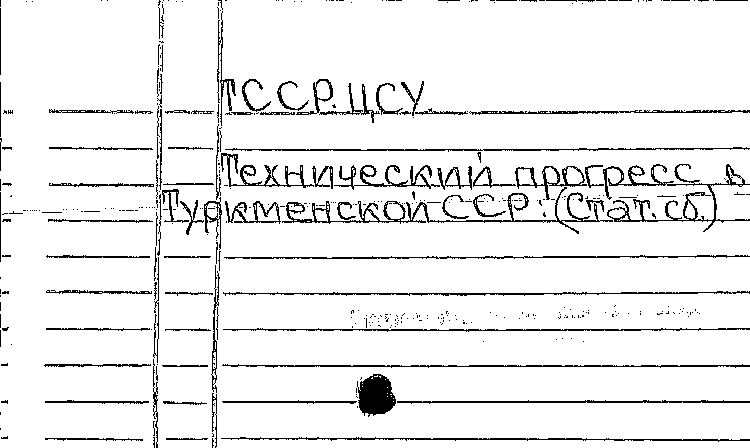 ТССР. ЦСУ.
Технический прогресс в
Туркменской ССР: (Стат. сб.)